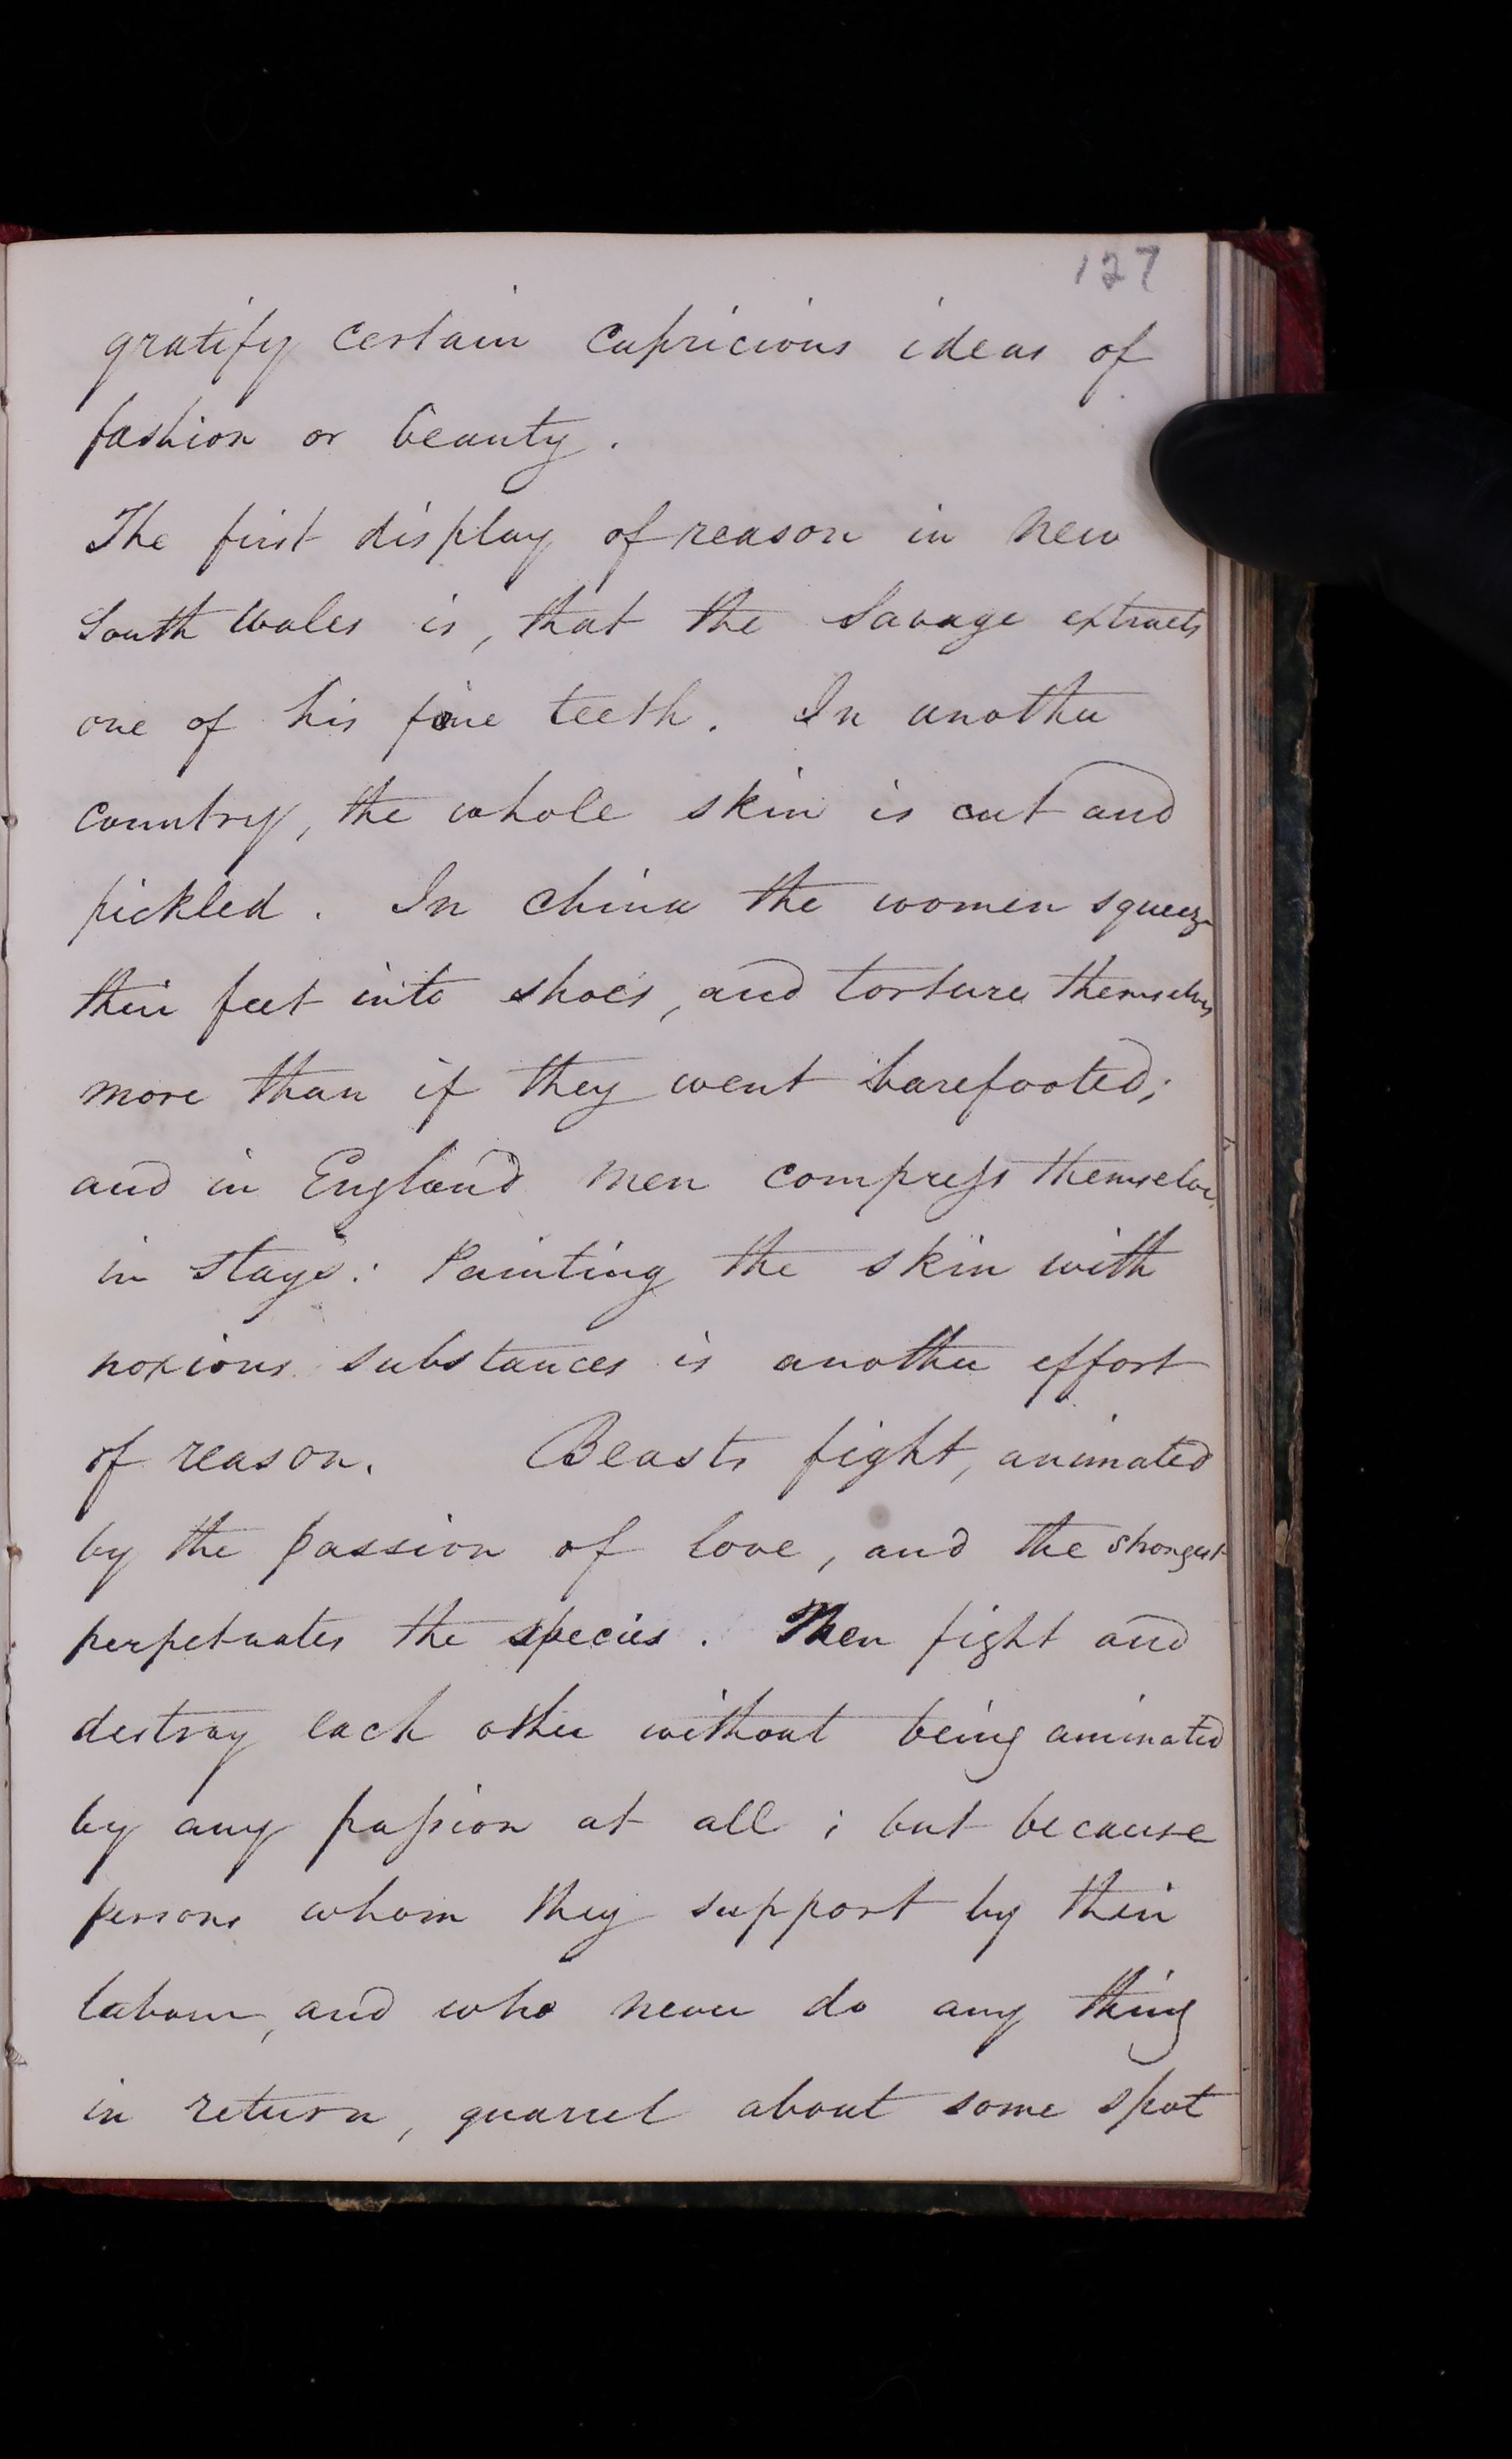 127
gratify certain capricious ideas of
fashion or beauty.
The first display of reason in new
South Wales is, that the Savage extracts
one of his fore teeth. In another
country, the whole skin is cut and
pickled. In China the women squeeze
their feet into shoes, and torture themselves
more than if they went barefooted;
and in England men compress themselves
in stays: Painting the skin with
noxious substances is another effort
of reason. Beasts fight, animated
by the passion of love, and the strongest
perpetuates the species. Men fight and
destroy each other without being animated
by any passion at all; but because
persons whom they support by their
labour, and who never do any thing
in return, quarrel about some spot